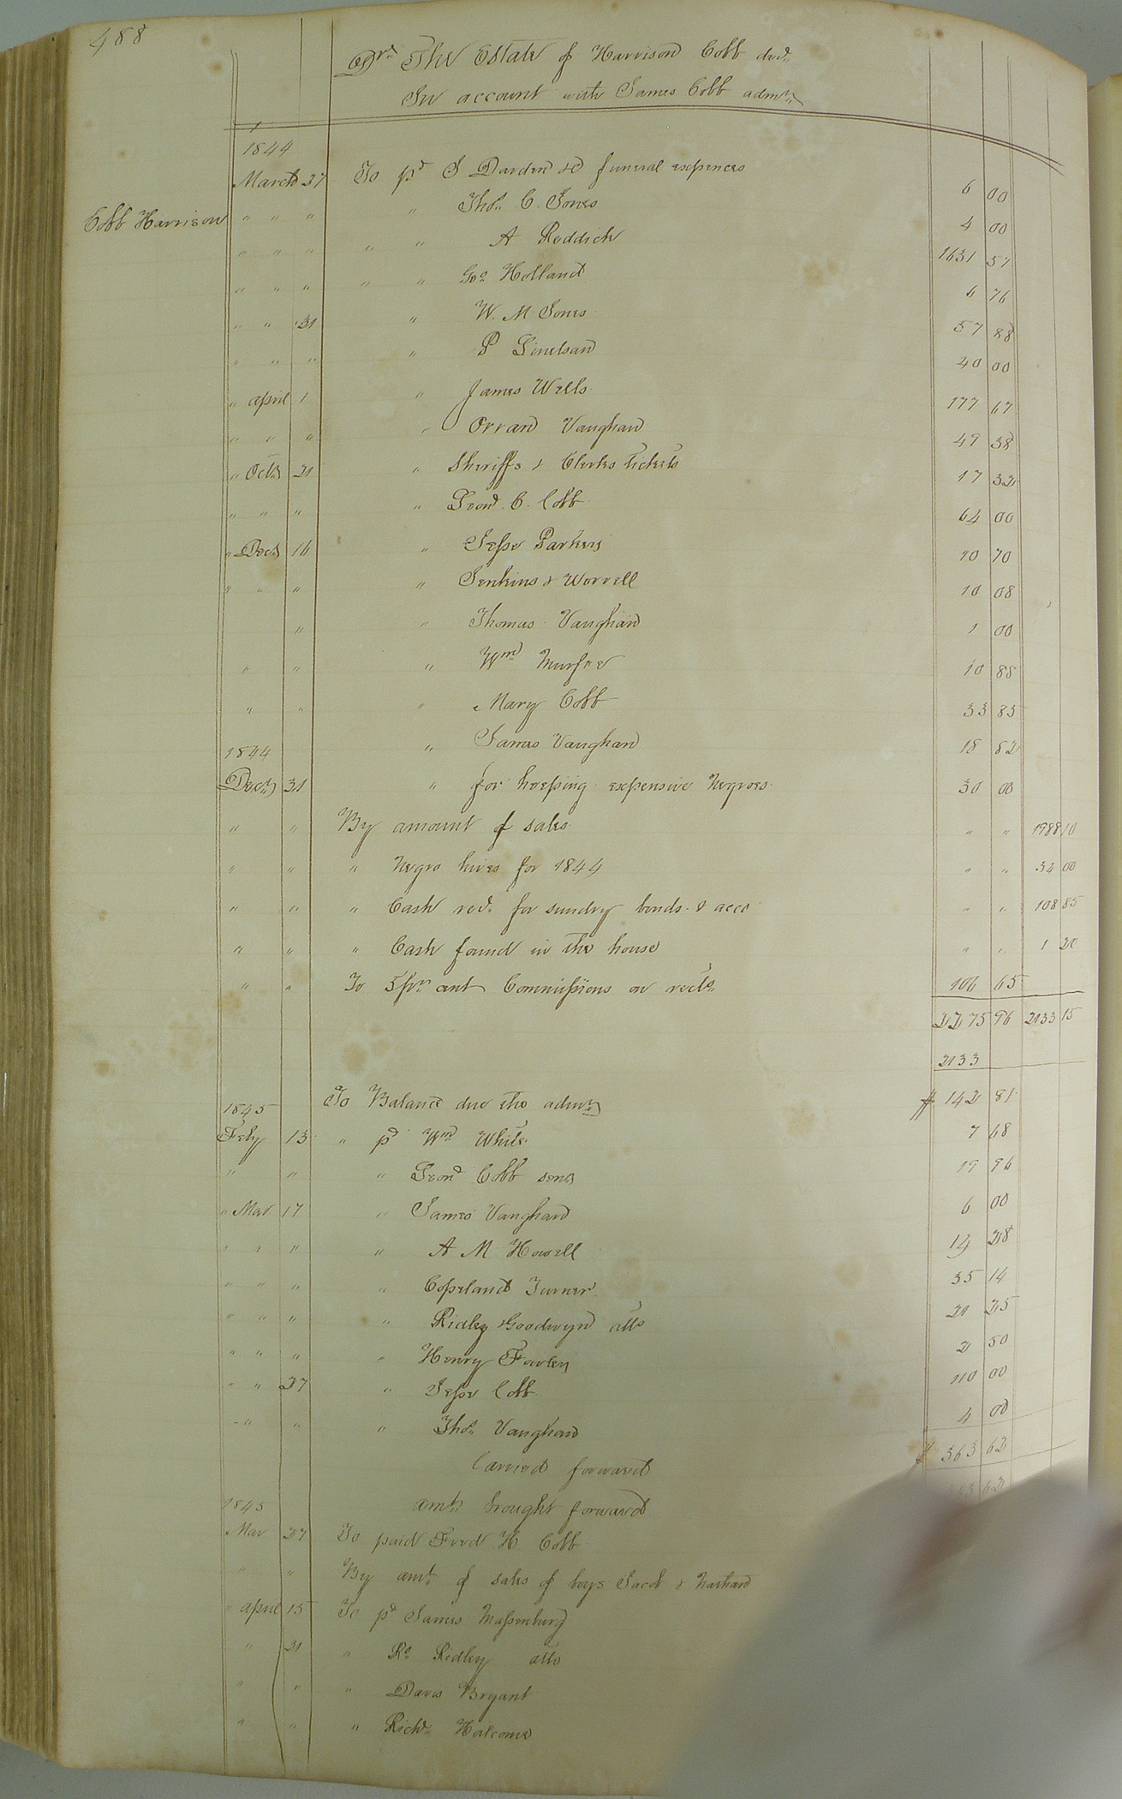 488
Dr. The Estate of Harrison Cobb decd.
In account with James Cobb admr.
1844
March 27 To pd J Darden &c funeral expences 6 00
Cobb Harrison " " " " Thos. C. Jones 4 00
" " " " " A Reddick 1631 57
" " " " " Geo Holland 6 76
" " 31 " W. M Jones 57 88
" " " " 40 00
" april 1 " James Wells 177 67
" " " " Orran Vaughan 49 38
" Octr 21 " Sheriffs & Clerks tickets 17 32
" " " " C. Cobb 64 00
" Decr 16 " Jesse Parker 10 70
" " " " Jenkins & Worrell 10 08
" " Thomas Vaughan 1 00
" " " Wm Murfee 10 88
" " " Mary Cobb 33 85
1844 " James Vaughan 18 82
Decr 31 " for keeping expensive Negroes 30 00
" " By amount of sales " " 1988 10
" " " Negro hires for 1844 " " 34 00
" " " Cash recd. for sundry bonds & accs " " 108 85
" " " Cash found in the house " " 1 20
" " To 5 pr cent Commissions on rects. 106 65
2275 96 2133 15
2133
To Balance due the admr $ 142 81
1845
Feby 13 " pd Wm White 7 68
" " " Cobb senr 19 96
" Mar 17 " James Vaughan 6 00
" " " " A M Howell 14 28
" " " " Copeland Turner 35 14
" " " " Ridley & Goodwyn atto 20 25
" " " " Henry 2 50
" " 27 " Jesse Cobb 110 00
" " " " Thos. Vaughan 4 00
Carried forward $ 363 62
1845 amt. brought forward 62
Mar 27 To paid Fred H. Cobb
" " By amt. of sales of boys Jacob & Nathan
" april 15 To pd James Massenburg
" 21 " Ro Ridley atto
" " " Davis Bryant
" " " Richd. Halcome